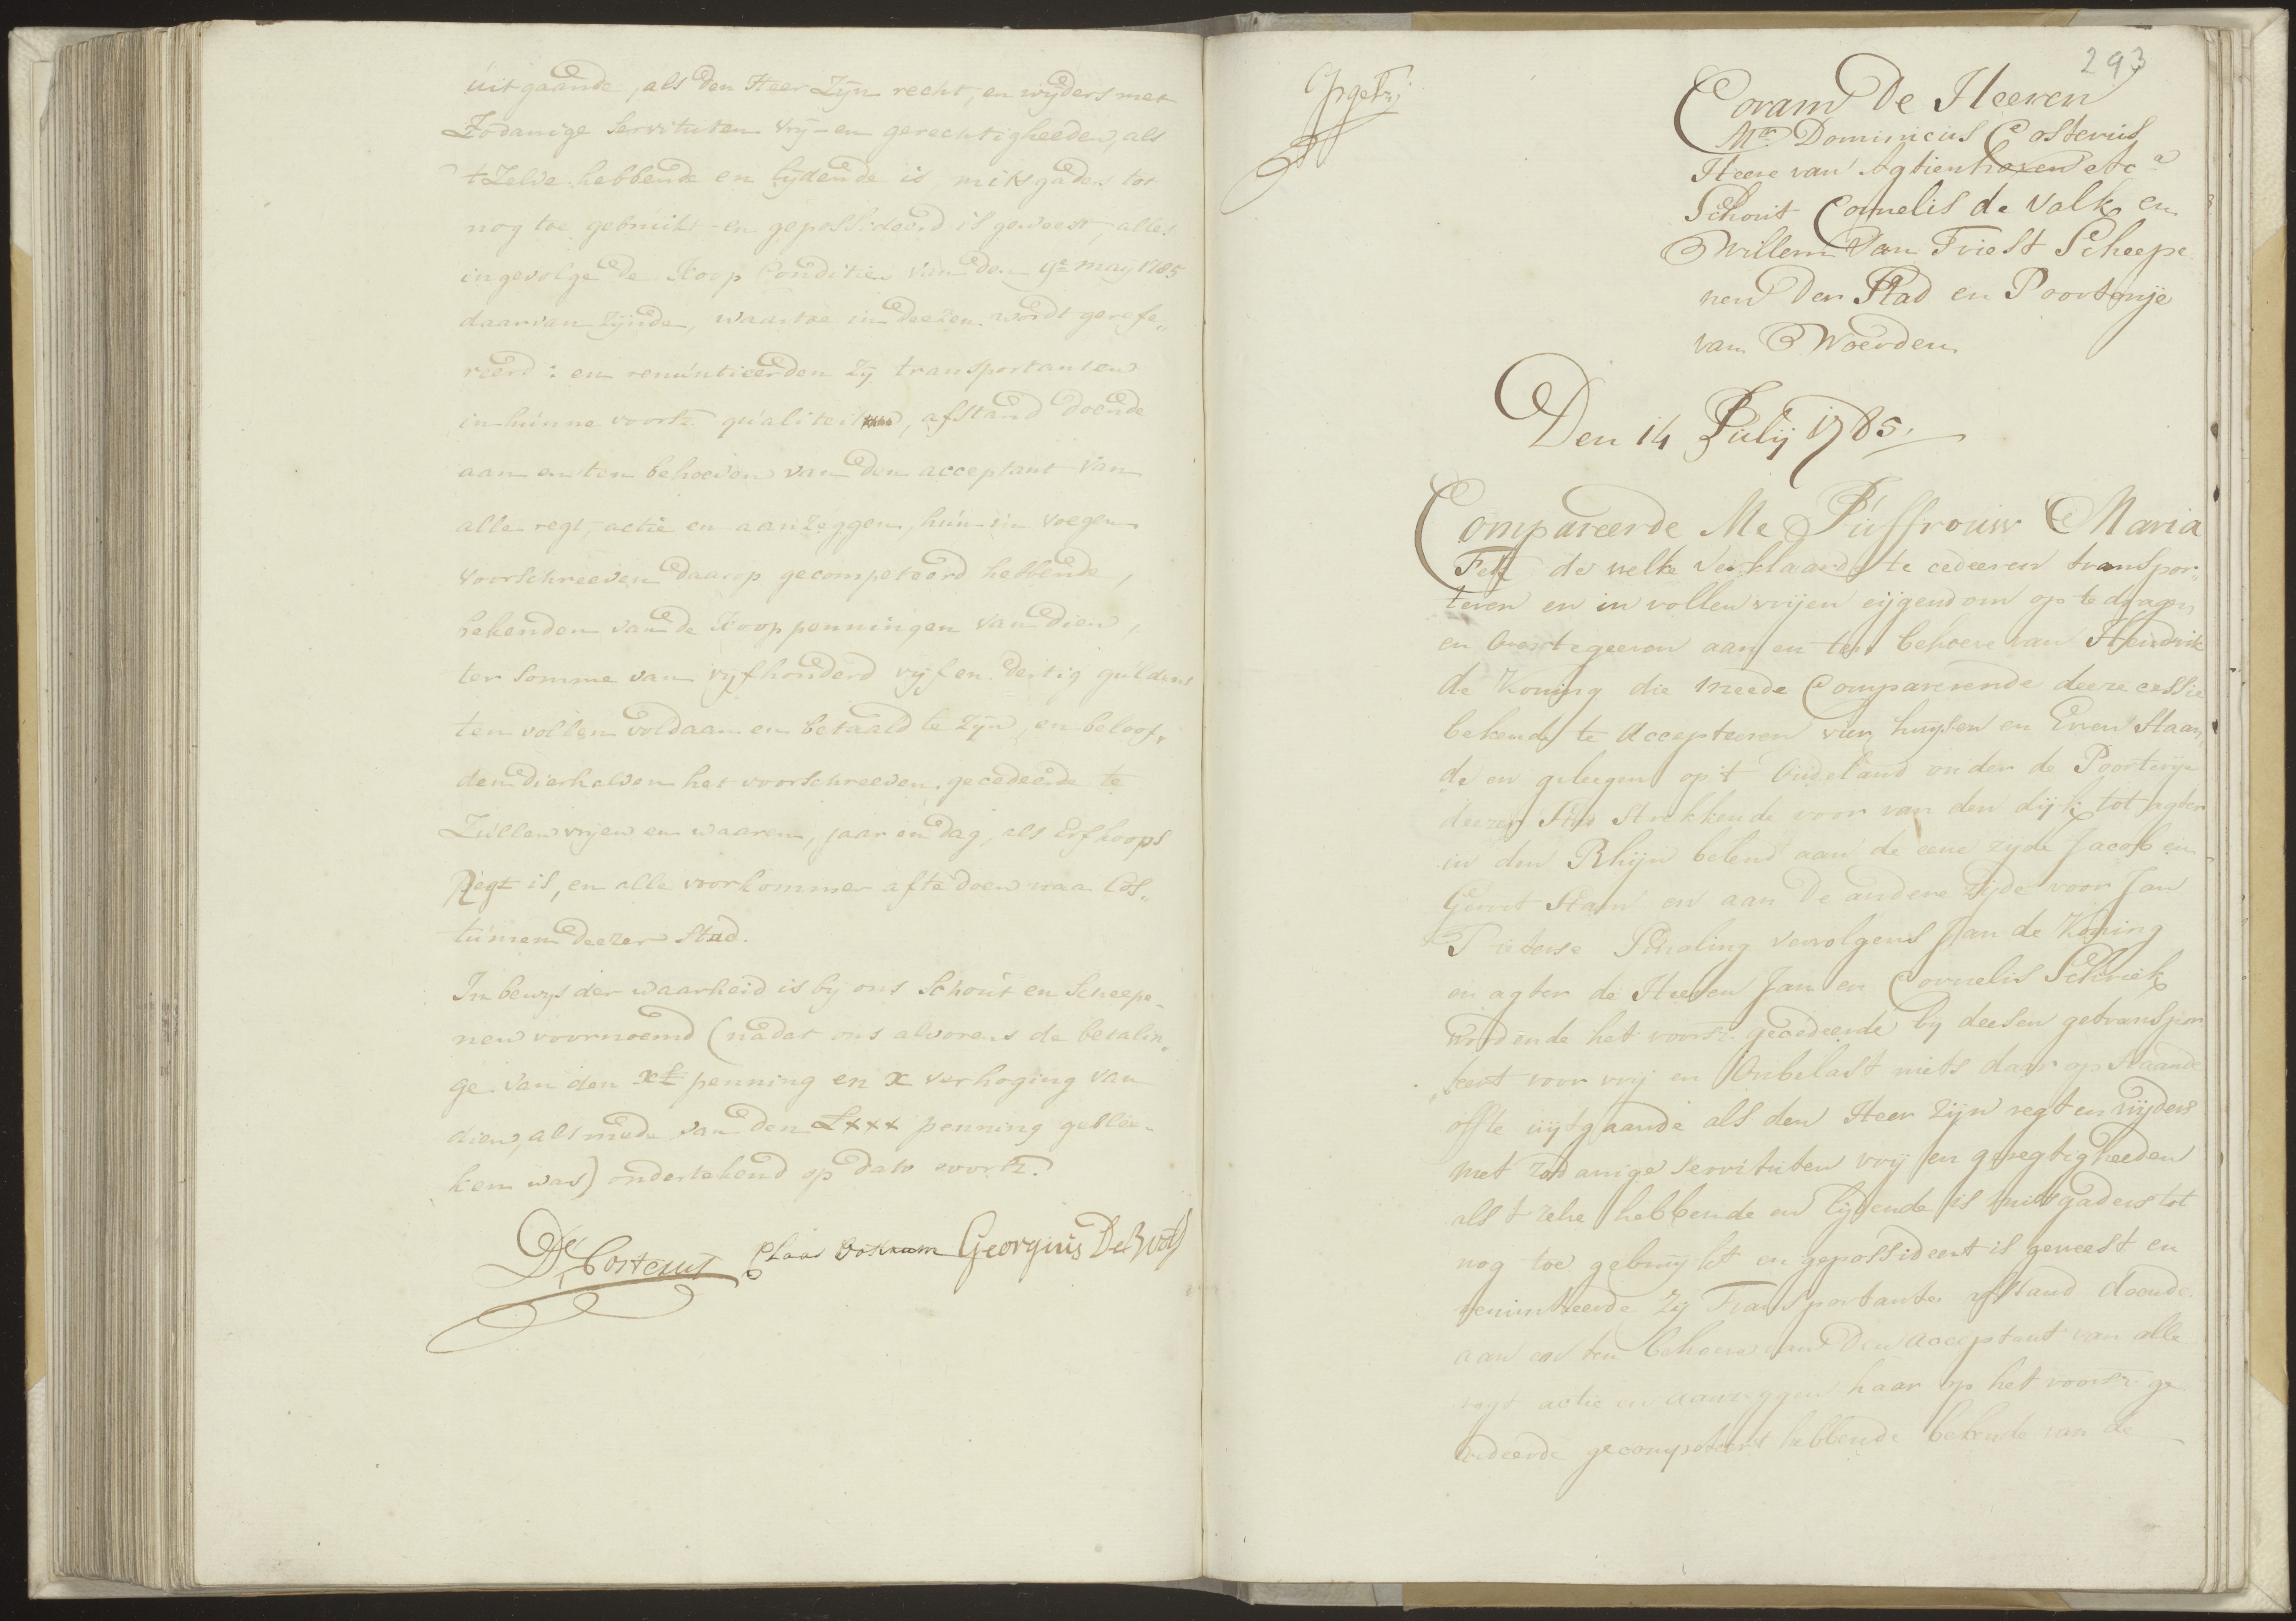 uitgaande, als den Heer Zijn recht, en wijders met
Zodanige Servituten vrij- en gerechtigheeden, als
't Zelve hebbende en lijdende is, mitsgaders tot
nog toe gebruikt en gepossideerd is geweest, alles
ingevolge de Koop Conditien van den 9e may 1785
daarvan Zijnde, waartoe in deezen wordt gerefe„
reerd: en renuntieerden Zij transportanten
in hunne voorsz. qualiteit, afstand doende
aan en ten behoeven van den acceptant van
alle regt, actie en aanzeggen, hun in voegen
voorschreeven daarop gecompeteerd hebbende,
bekenden van de Kooppenningen van dien,
ter Somme van vyfhonderd vyf en dertig guldens
ten vollen voldaan en betaald te zyn, en beloof„
den dierhalven het voorschreeven gecedeerde te
Zullen vrijen en waaren, jaar en dag, als Erfkoops
Regt is, en alle voorkommer afte doen naa Cos„
tumen deezer Stad.
In bewys der waarheid is by ons Schout en Scheepe-
nen voornoemd (nadat ons alvorens de betalin„
ge van den xl penning en x verhoging van
dien, als mede van den Lxxx penning geblee-
ken was) ondertekend op dato voorsz.
D. Costerus Claas Georgius De
293
Coram De Heeren
Mr. Dominicus Costerus
Heere van Agtienhoven etca
Schout Cornelis de Valk en
Willem van Triest Scheepe
nen Der Stad en Poorterije
van Woerden
Den 14 Julij 1785.
Compareerde Me Juffrouw Maria
de welke verklaarde te cedeeren transpor„
teren en in vollen vrijen eijgendom op te dragen
en over te geeven aan en ten behoeve van Hendrik
de Koning die meede Comparerende deeze cessie
bekende te Accepteeren vier huysen en Erven Staan„
de en geleegen op 't onder de Poorterije
deezer Stad Strekkende voor van den dijk tot agter
in den Rhijn belend aan de eene zijde Jacob en
Gerrit Stam en aan De andere zijde voor Jan
Pieterse Schaling vervolgens Jan de Koning
en agter de Heeren Jan en Cornelis Schriek
wordende het voorsz. gecedeerde bij deesen getranspor
teert voor vrij en Onbelast niets daar op staande
offte uijtgaande als den Heer zijn regt en wijders
met zodanige Servituten vrij en geregtigheeden
als t zelve hebbende en lijdende is mitsgaders tot
nog toe gebruijkt en gepossideert is geweest en
renuntieerde Zij Transportante afstand doende
aan en ten behoeve van Den acceptant van alle
regt actie en aanzeggen haar op het voorsz. ge
cedeerde gecompeteert hebbende bekende van de